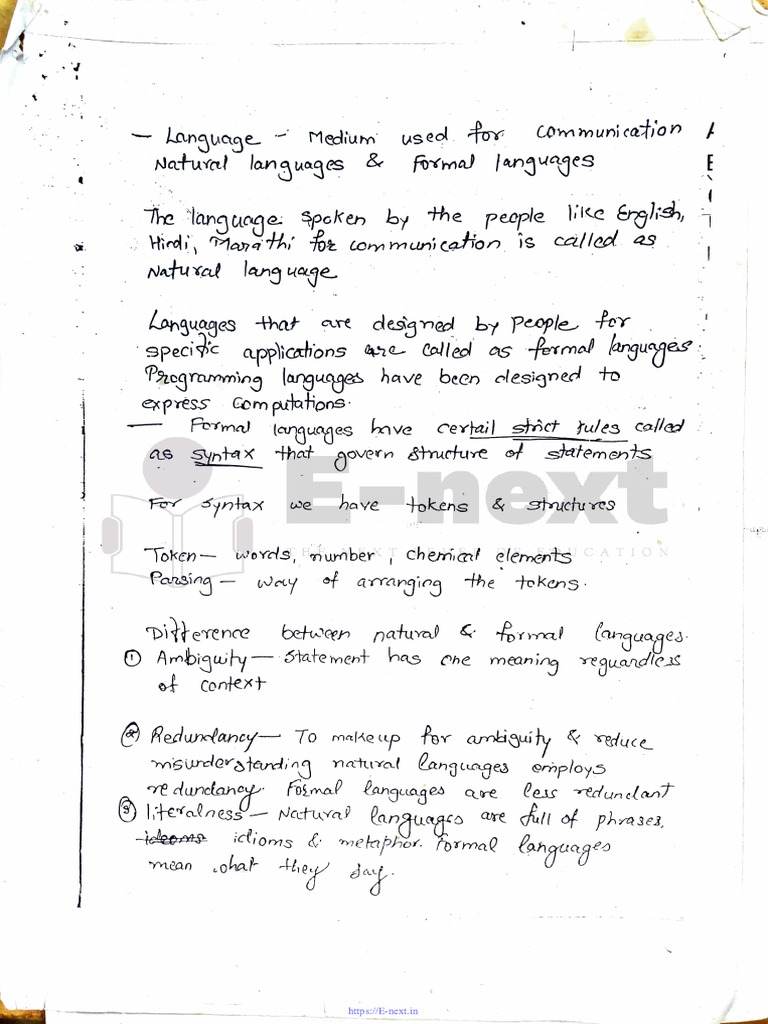 — Language - Medium used for communication
Natural languages & Formal languages
The language spoken by the people like English,
Hindi, Marathi for communication is called as
Natural language
Languages that are designed by people for
specific applications are called as formal languages.
Programming languages have been designed to
express computations.
— Formal languages have certail strict rules called
as syntax that govern structure of statements
For syntax we have tokens & structures
Token — words, number, chemical elements
Parsing — way of arranging the tokens.
Difference between natural & formal languages.
① Ambiguity — Statement has one meaning reguardless
of context
② Redundancy — To makeup for ambiguity & reduce
misunderstanding natural languages employs
redundancy. Formal languages are less redundant
③ literalness — Natural languages are full of phrases,
idioms & metaphor. Formal languages
mean what they say.
E-next
THE NEXT LEVEL OF EDUCATION
https://E-next.in